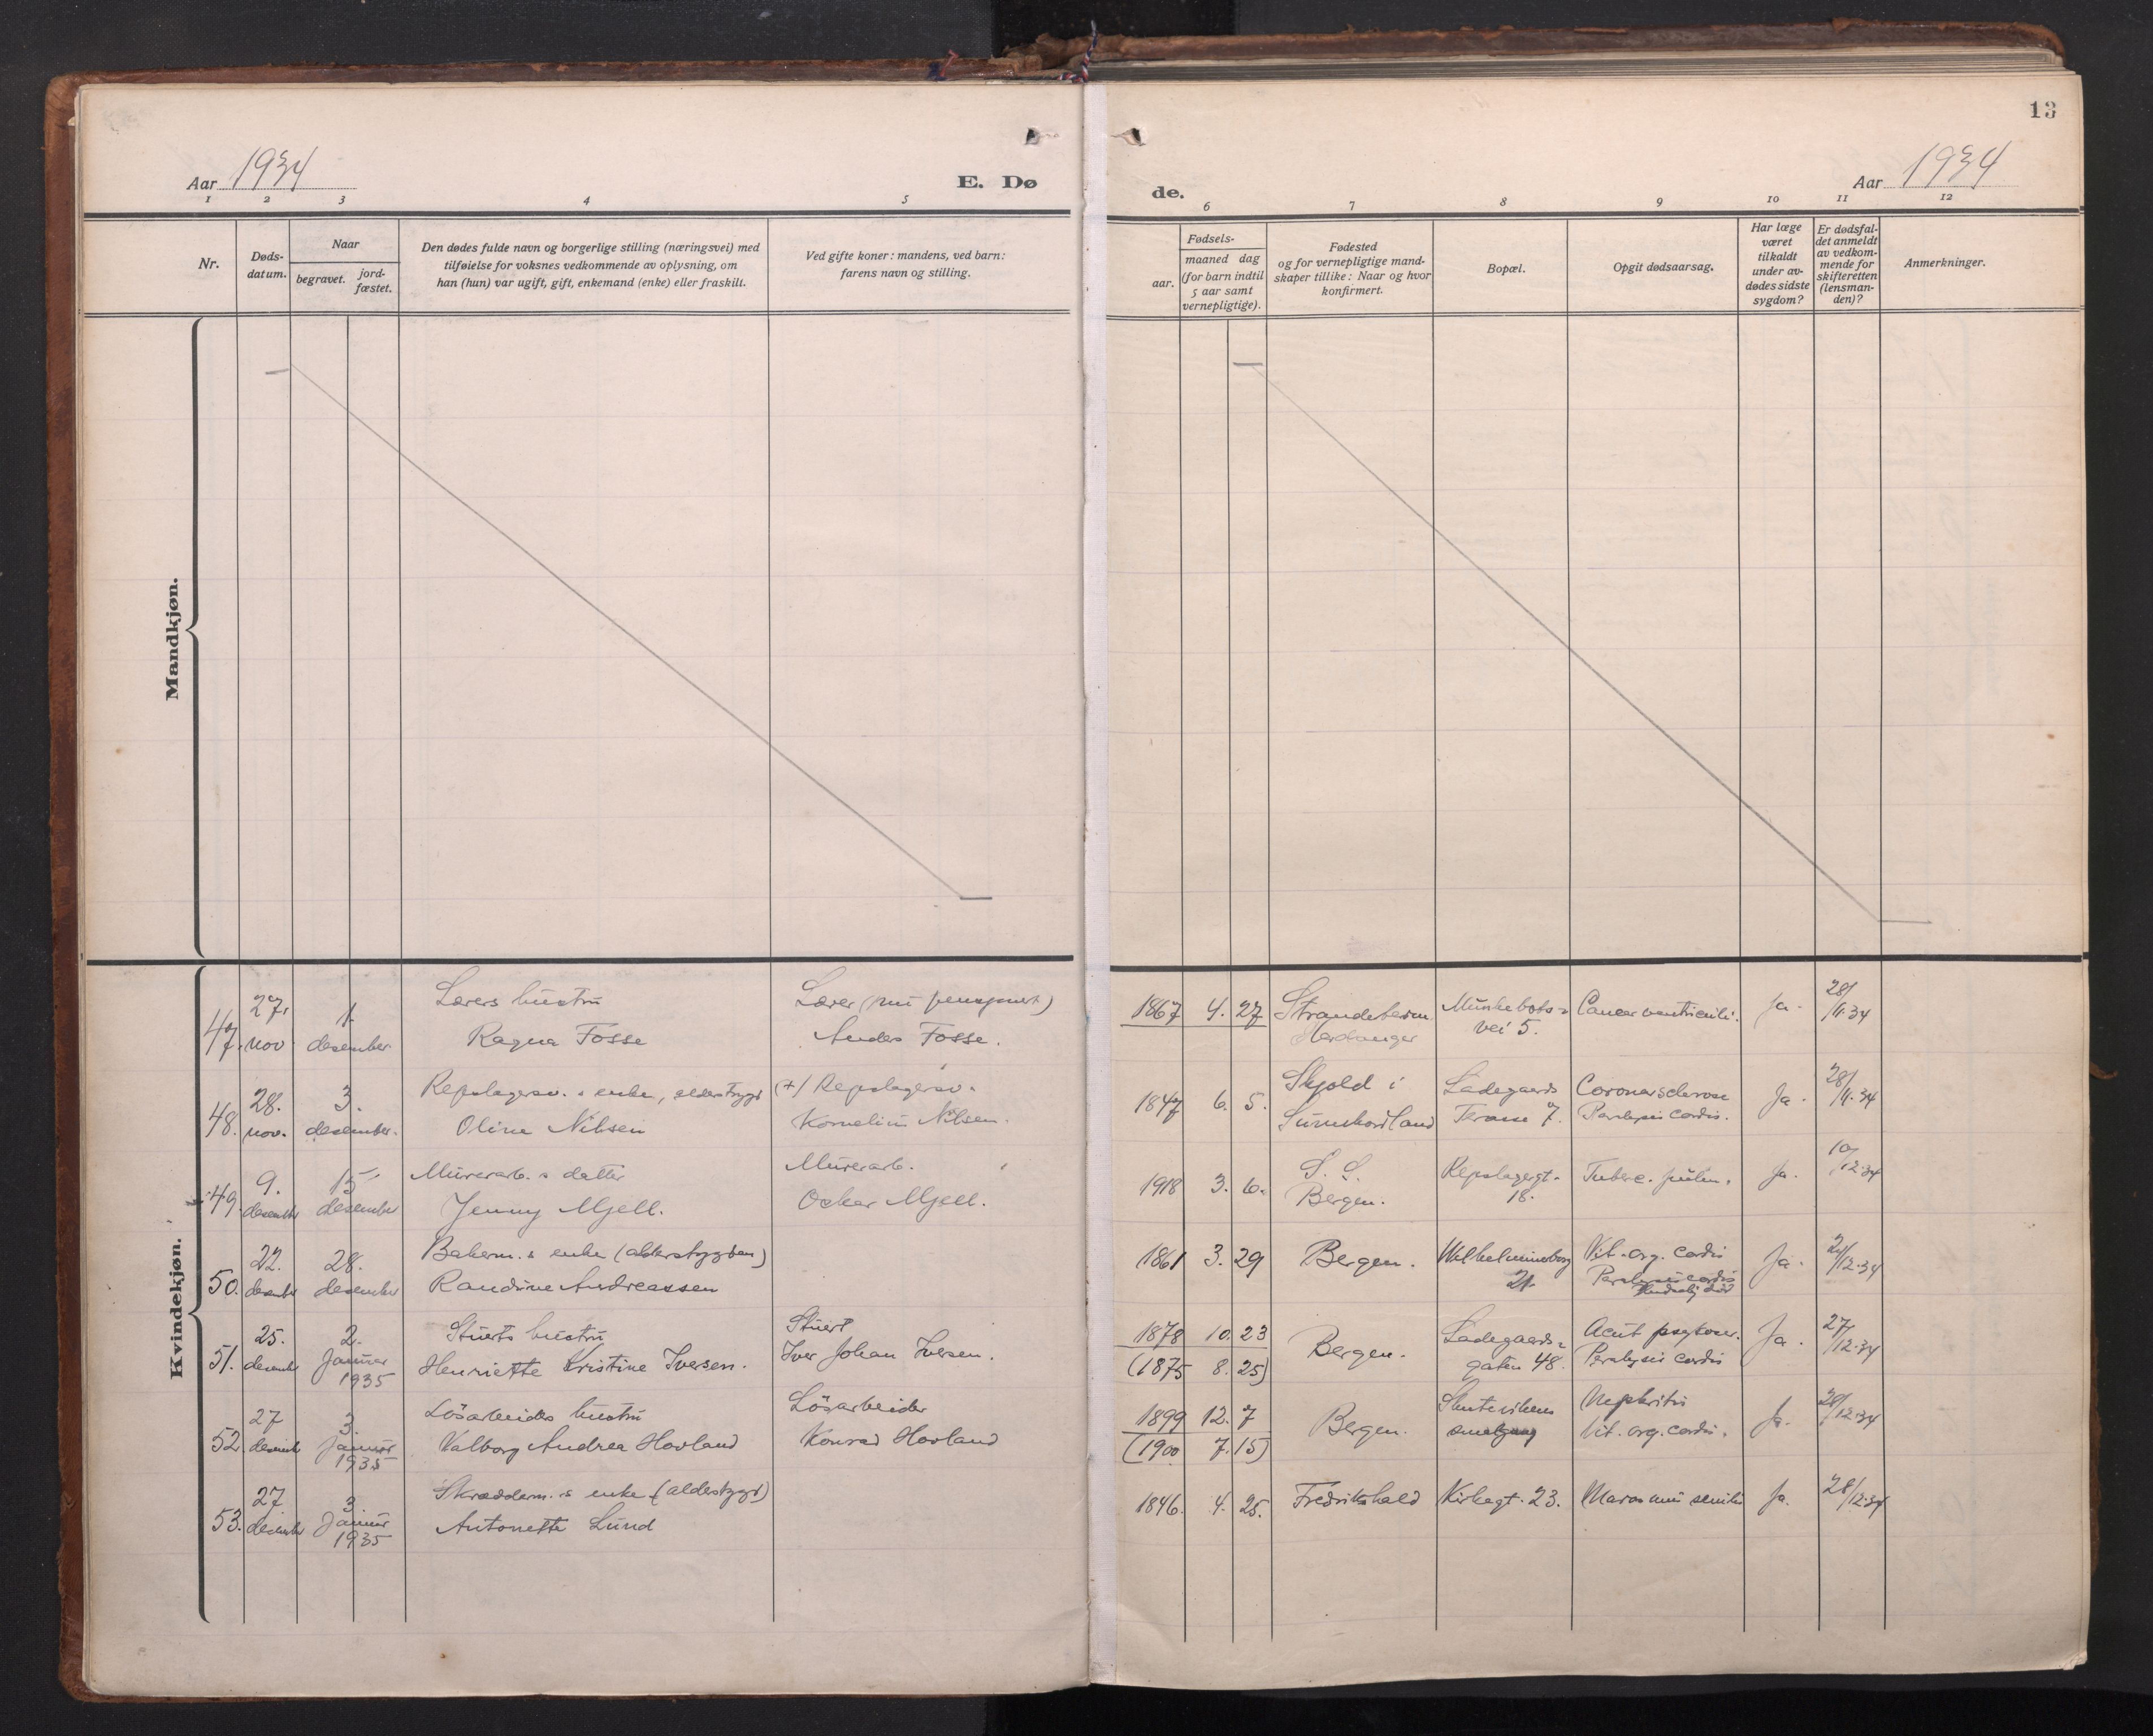 13
Aar 1934
E. Dø
de.
Aar 1934
1 2 3 4 5
6 7 8 9 10 11 12
Nr.
Døds-
datum.
Naar
begravet.
jord-
fæstet.
Den dødes fulde navn og borgerlige stilling (næringsvei) med
tilføielse for voksnes vedkommende av oplysning, om
han (hun) var ugift, gift, enkemand (enke) eller fraskilt.
Ved gifte koner: mandens, ved barn:
farens navn og stilling.
Fødsels-
aar.
maaned dag
(for barn indtil
5 aar samt
vernepligtige).
Fødested
og for vernepligtige mand-
skaper tillike: Naar og hvor
konfirmert.
Bopæl.
Opgit dødsaarsag.
Har læge
været
tilkaldt
under av-
dødes sidste
sygdom?
Er dødsfal-
det anmeldt
av vedkom-
mende for
skifteretten
(lensman-
den)?
Anmerkninger.
Mandkjøn.
Kvindekjøn.
47. 27. nov. 1. desember
Lærers hustru
Ragna Fosse
Lærer (nu pensjonert)
Anders Fosse.
1867 4. 27
Strandebarm
Hardanger
Munkebots-
vei 5.
Cancer ventriculi.
Ja.
28/11.34
48. 28. nov. 3. desember.
Repslagersv.s enke, alderstrygd
Oline Nilsen
(+) Repslagersv.
Kornelius Nilsen.
1847 6. 5.
Skjold i
Sunnhordland
Ladegaards
Terasse 7.
Coronarsclerose
Paralysis cordis.
Ja.
28/11.34
49. 9. desember 15 desember
Murerarb.s datter
Jenny Mjell.
Murerarb.
Oskar Mjell.
1918 3. 6.
S. S.
Bergen.
Repslagergt.
18.
Tuberc. pulm.
Ja.
10/12.34
50. 22. desember 28. desember
Bakerm.s enke (alderstrygden)
Randine Andreassen
1861 3. 29
Bergen.
Wilhelmineborg
21.
Vit. org. cordis
Paralysis cordis
Ja.
24/12.34
51. 25. desember 2. Januar 1935
Stuerts hustru
Henriette Kristine Iversen.
Stuert
Iver Johan Iversen.
1878 10. 23
(1875 8. 25)
Bergen.
Ladegaards-
gaten 48.
Acut psykose.
Paralysis cordis
Ja.
27/12.34
52. 27 desember 3. Januar 1935
Løsarbeiders hustru
Valborg Andrea Hovland
Løsarbeider
Konrad Hovland
1899 12. 7
(1900 7. 15)
Bergen.
Skutevikens
smalgang
Nephritis
Vit. org. cordis.
Ja.
28/12.34
53. 27 desember 3. Januar 1935
Skrædderm.s enke (alderstrygd)
Antonette Lund
1846. 4. 25.
Fredrikshald
Kirkegt. 23.
Marasmus senilis
Ja.
28/12.34